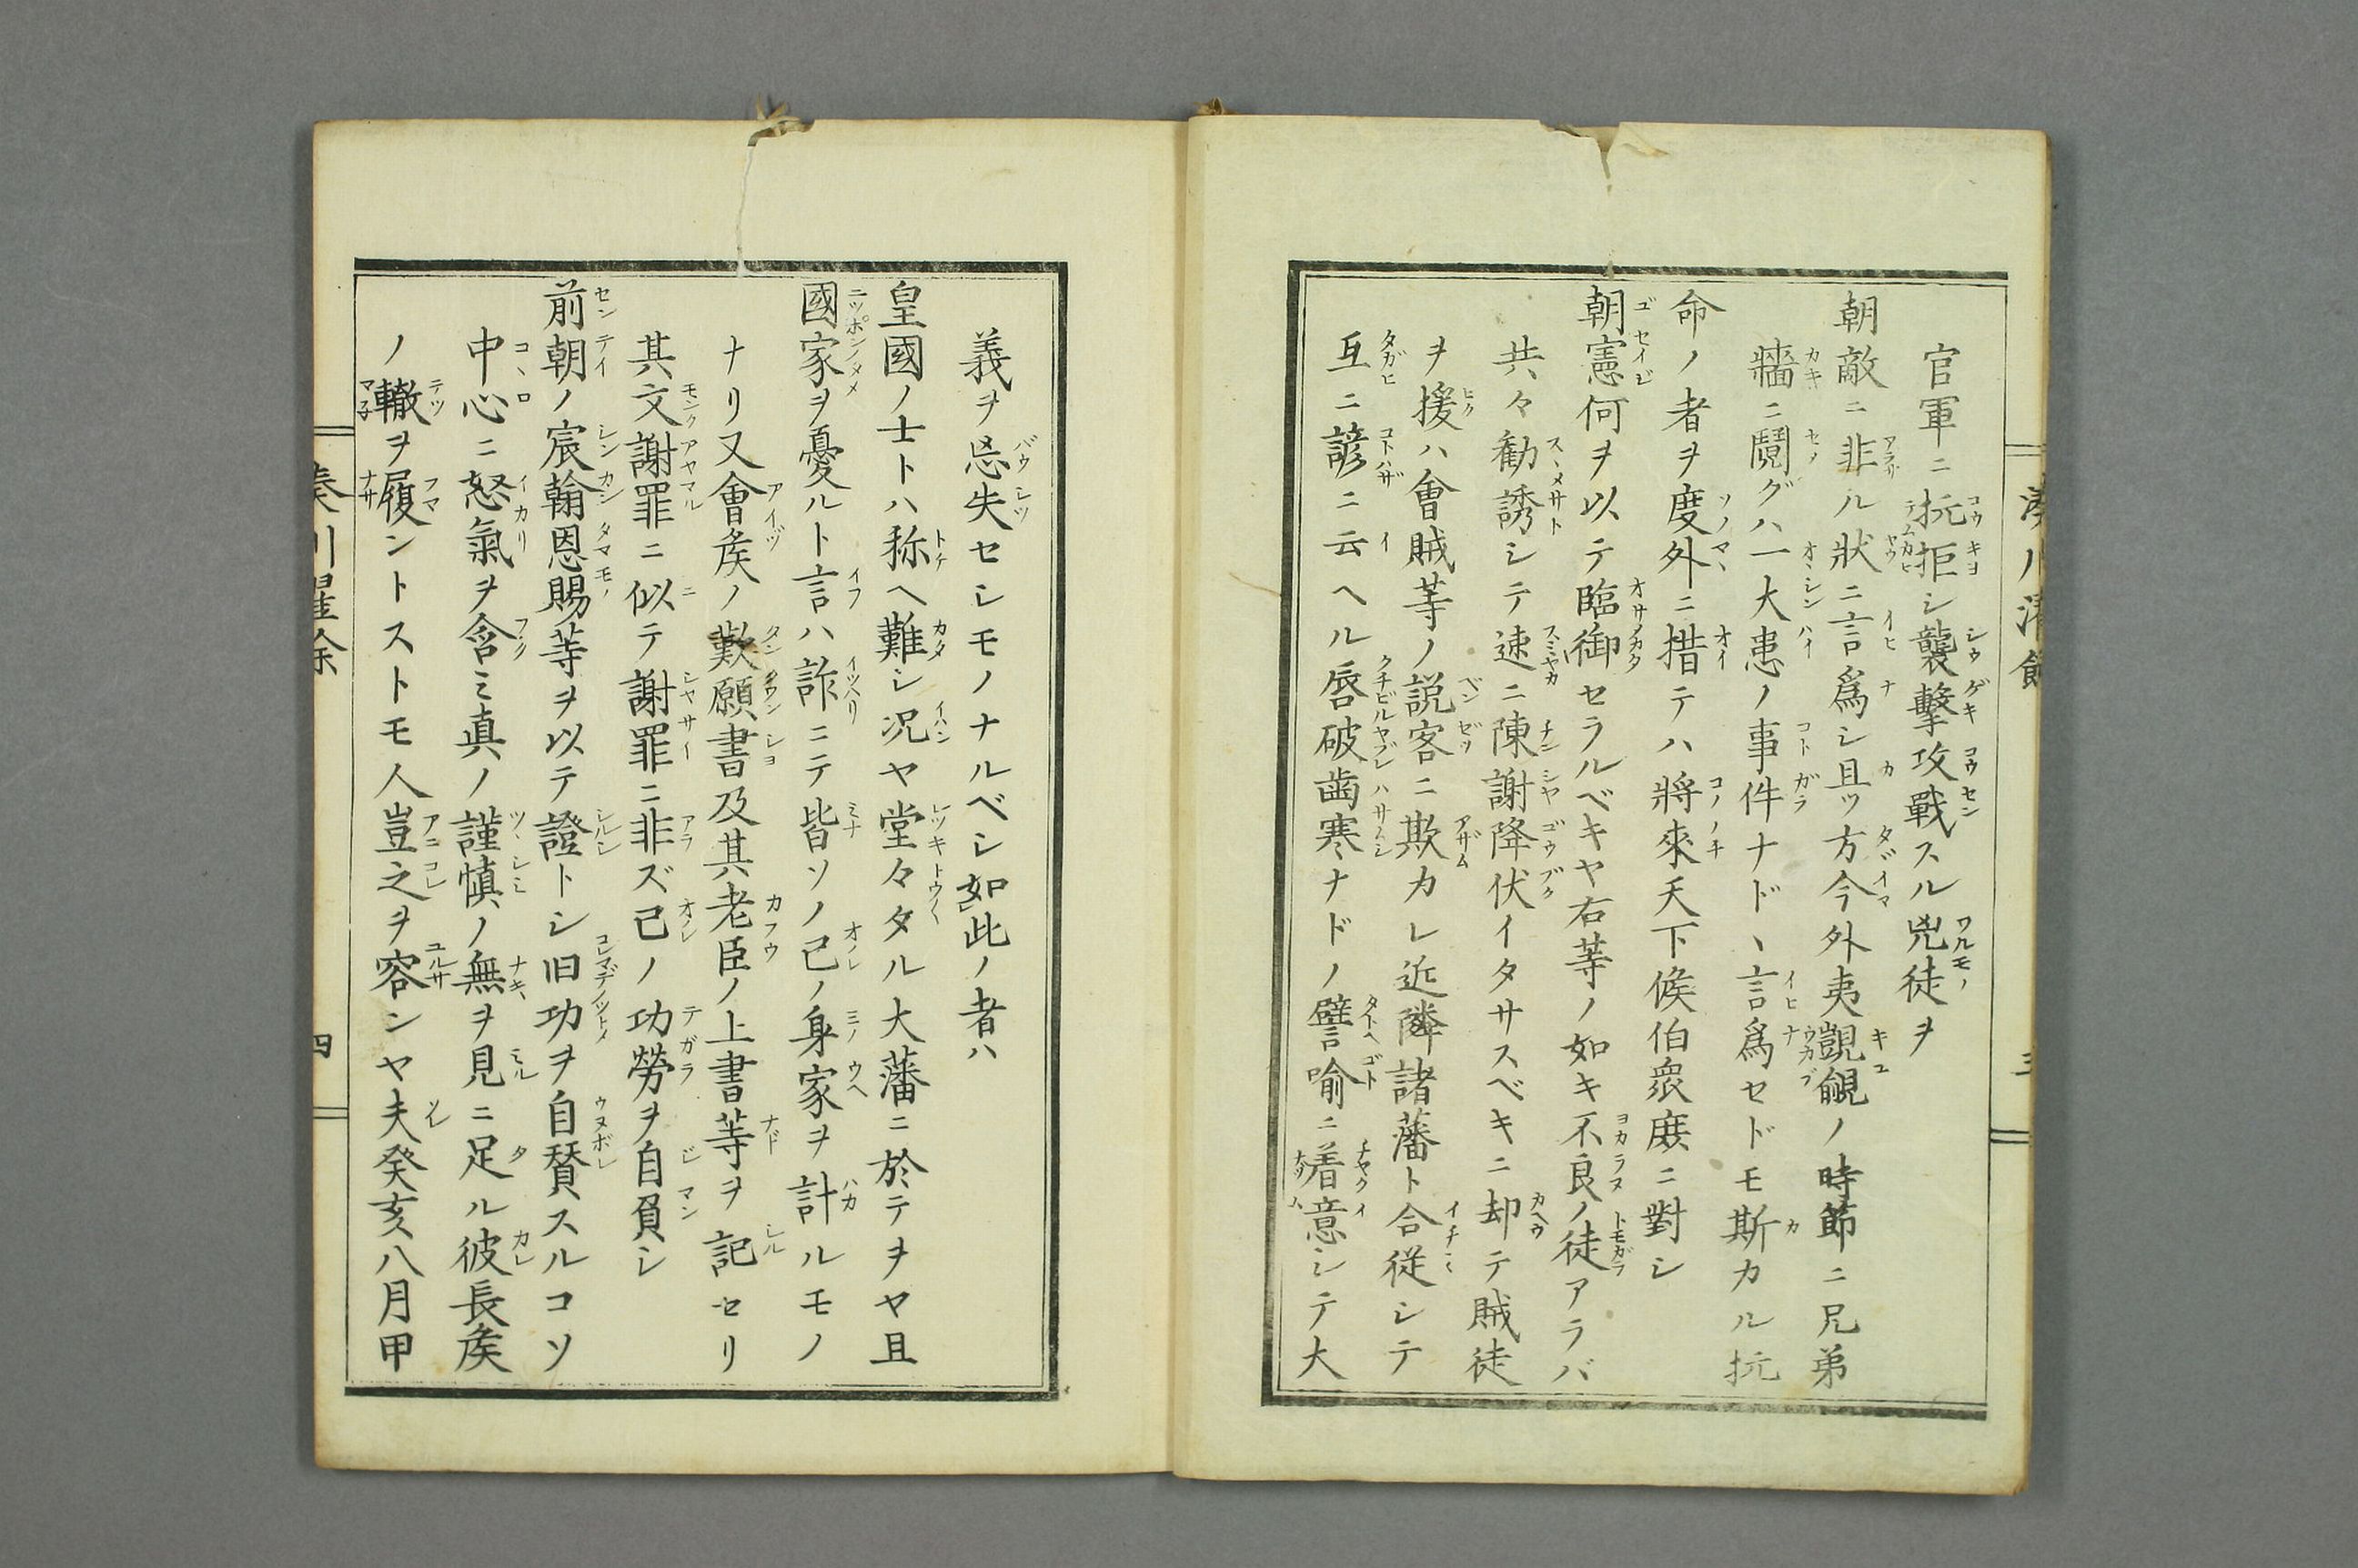 官軍ニ抗拒シ襲擊攻戰スル兇徒ヲ
朝敵ニ非ル狀ニ言爲シ且ツ方今外夷覬覦ノ時節ニ兄弟
牆ニ鬩グハ一大患ノ事件ナドヽ言爲セドモ斯カル抗
命ノ者ヲ度外ニ措テハ將來天下候伯衆庻ニ對シ
朝憲何ヲ以テ臨御セラルベキヤ右䓁ノ如キ不良ノ徒アラバ
共々勧誘シテ速ニ陳謝降伏イタサスベキニ却テ賊徒
ヲ援ハ會賊䓁ノ説客ニ欺カレ近隣諸藩ト合従シテ
互ニ諺ニ云ヘル唇破齒寒ナドノ譬喻ニ着意シテ大
義ヲ忘失セシモノナルベシ如此ノ者ハ
皇國ノ士トハ称ヘ難シ况ヤ堂々タル大藩ニ於テヲヤ且
國家ヲ憂ルト言ハ詐ニテ皆ソノ己ノ身家ヲ計ルモノ
ナリ又會矦ノ歎願書及其老臣ノ上書䓁ヲ記セリ
其文謝罪ニ似テ謝罪ニ非ズ己ノ功勞ヲ自負シ
前朝ノ宸翰恩賜䓁ヲ以テ證トシ旧功ヲ自賛スルコソ
中心ニ怒氣ヲ含ミ真ノ謹慎ノ無ヲ見ニ足ル彼長矦
ノ轍ヲ履ントストモ人豈之ヲ容ンヤ夫癸亥八月甲
四